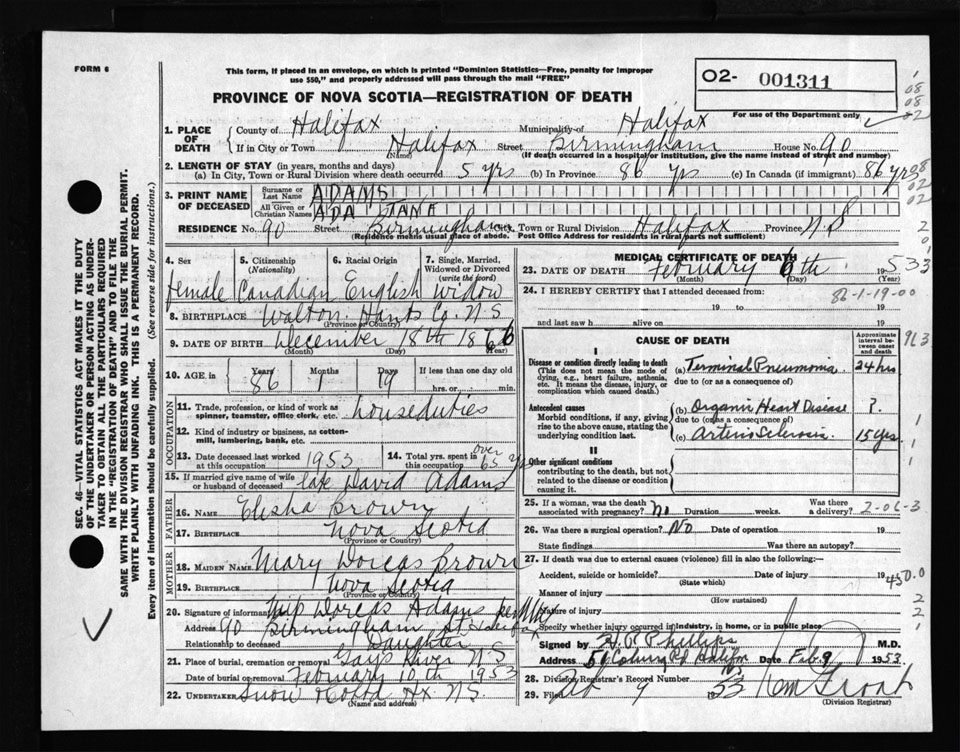 FORM 6
This form, if placed in an envelope, on which is printed "Dominion Statistics—Free, penalty for improper
use $50," and properly addressed will pass through the mail "FREE"
O2- 001311
For use of the Department only
PROVINCE OF NOVA SCOTIA—REGISTRATION OF DEATH
1. PLACE OF DEATH
County of Halifax Municipality of Halifax
If in City or Town Halifax Street Birmingham House No. 90
(Name) (If death occurred in a hospital or institution, give the name instead of street and number)
2. LENGTH OF STAY (in years, months and days)
(a) In City, Town or Rural Division where death occurred 5 yrs (b) In Province 86 yrs (c) In Canada (if immigrant) 86 yrs
3. PRINT NAME OF DECEASED
Surname or Last Name ADAMS
All Given or Christian Names ADA JANE
RESIDENCE No. 90 Street Birmingham City, Town or Rural Division Halifax Province N S
(Residence means usual place of abode. Post Office Address for residents in rural parts not sufficient)
4. Sex 5. Citizenship (Nationality) 6. Racial Origin 7. Single, Married, Widowed or Divorced (write the word)
female Canadian English Widow
8. BIRTHPLACE Walton Hants Co. N S
(Province or Country)
9. DATE OF BIRTH December 18th 1866
(Month) (Day) (Year)
10. AGE in Years Months Days If less than one day old
86 1 19 hrs. or min.
OCCUPATION
11. Trade, profession, or kind of work as spinner, teamster, office clerk, etc. houseduties
12. Kind of industry or business, as cotton-mill, lumbering, bank, etc.
13. Date deceased last worked at this occupation 1953 14. Total yrs. spent in this occupation over 65 yrs
15. If married give name of wife or husband of deceased late David Adams
FATHER
16. Name Elisha Brown
17. Birthplace Nova Scotia
(Province or Country)
MOTHER
18. Maiden Name Mary Dorcas Brown
19. Birthplace Nova Scotia
(Province or Country)
20. Signature of informant Dorcas Adams
Address 90 Birmingham St Halifax
Relationship to deceased Daughter
21. Place of burial, cremation or removal Gays River N S
Date of burial or removal February 10th 1953
22. UNDERTAKER Snow Hx N.S.
(Name and address)
MEDICAL CERTIFICATE OF DEATH
23. DATE OF DEATH February 6th 1953
(Month) (Day) (Year)
24. I HEREBY CERTIFY that I attended deceased from:
86-1-19-00
19 to 19
and last saw h alive on 19
CAUSE OF DEATH
Approximate interval between onset and death
I
Disease or condition directly leading to death
(This does not mean the mode of dying, e.g., heart failure, asthenia, etc. It means the disease, injury, or complication which caused death.)
(a) Terminal Pneumonia 24 hrs
due to (or as a consequence of)
Antecedent causes
Morbid conditions, if any, giving rise to the above cause, stating the underlying condition last.
(b) Organic Heart Disease ?
due to (or as a consequence of)
(c) Arterio Sclerosis 15 yrs.
II
Other significant conditions
contributing to the death, but not related to the disease or condition causing it.
25. If a woman, was the death associated with pregnancy? No Duration weeks. Was there a delivery? 2-06-3
26. Was there a surgical operation? No Date of operation 19
State findings Was there an autopsy?
27. If death was due to external causes (violence) fill in also the following:
Accident, suicide or homicide? Date of injury 19
(State which)
450.0
Manner of injury
(How sustained)
Nature of injury
Specify whether injury occurred in industry, in home, or in public place
Signed by Phillips M.D.
Address 51 Coburg Rd Halifax Date Feb 9 1953
28. Division Registrar's Record Number
29. Filed Feb 9 1953
(Division Registrar)
SEC. 46—VITAL STATISTICS ACT MAKES IT THE DUTY
OF THE UNDERTAKER OR PERSON ACTING AS UNDER-
TAKER TO OBTAIN ALL THE PARTICULARS REQUIRED
IN THE "REGISTRATION OF DEATH" AND TO FILE THE
SAME WITH THE DIVISION REGISTRAR WHO SHALL ISSUE THE BURIAL PERMIT.
WRITE PLAINLY WITH UNFADING INK. THIS IS A PERMANENT RECORD.
Every item of information should be carefully supplied. (See reverse side for instructions.)